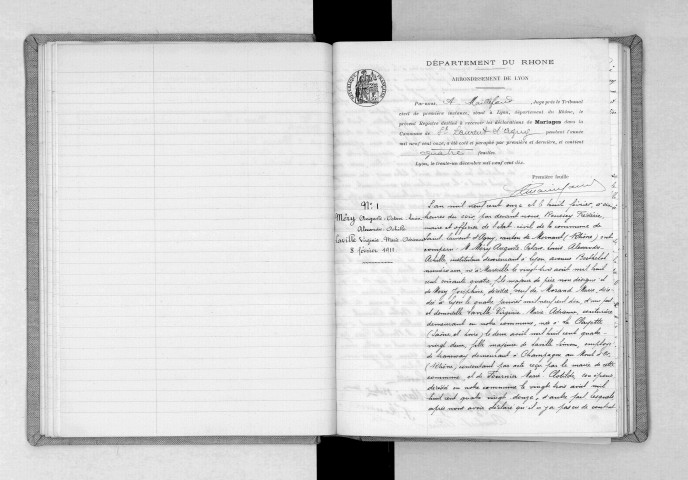 DÉPARTEMENT DU RHONE
ARRONDISSEMENT DE LYON
RÉPUBLIQUE FRANÇAISE
Par nous, A. Juge près le Tribunal
civil de première instance, séant à Lyon, département du Rhône, le
présent Registre destiné à recevoir les déclarations de Mariages dans la
Commune de St Laurent d'Agny pendant l'année
mil neuf cent onze, a été coté et paraphé par première et dernière, et contient
quatre feuilles
Lyon, le trente-un décembre mil neuf cent dix.
Première feuille
N° 1
Méry Auguste
Alexandre Achille
Laville Virginie Marie
8 février 1911
L'an mil neuf cent onze et le huit février, à
heures du soir, par devant nous Frédéric
maire et officier de l'état civil de la commune de
Saint Laurent d'Agny, canton de Mornant (Rhône) ont
comparu M. Méry Auguste Louis Alexandre
Achille, instituteur demeurant à Lyon avenue Berthelot
né à Marseille le vingt trois avril mil huit
cent soixante quatre, fils majeur de père non désigné et
de Méry Joséphine, décédée, veuf de Morand Marie, décé-
dée à Lyon le quatre janvier mil neuf cent dix, d'une part
et demoiselle Laville Virginie Marie couturière
demeurant en notre commune, née à La Clayette
(Saône et Loire) le deux avril mil huit cent quatre
vingt deux, fille majeure de Laville Simon, employé
de tramway demeurant à Champagne au Mont d'Or
(Rhône), consentant par acte reçu par le maire de cette
commune, et de Fournier Marie Clotilde son épouse
décédée en notre commune le vingt trois avril mil
huit cent quatre vingt douze, d'autre part lesquels
après nous avoir déclaré qu'il n'y a pas eu de contrat